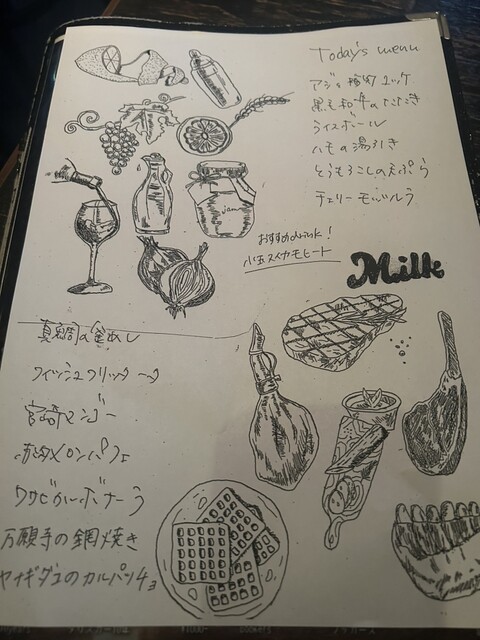 Today's menu
アジの 梅肉 ユッケ
黒毛和牛のたたき
ライスボール
ハモの湯引き
とうもろこしの天ぷら
チェリーモッツァレラ
おすすめdrink!
小玉スイカモヒート
Milk
jam
真鯛の釜めし
フィッシュフリッター
宮崎マンゴー
赤肉メロンパフェ
ワサビカルボナーラ
万願寺の網焼き
ヤナギダコのカルパッチョ